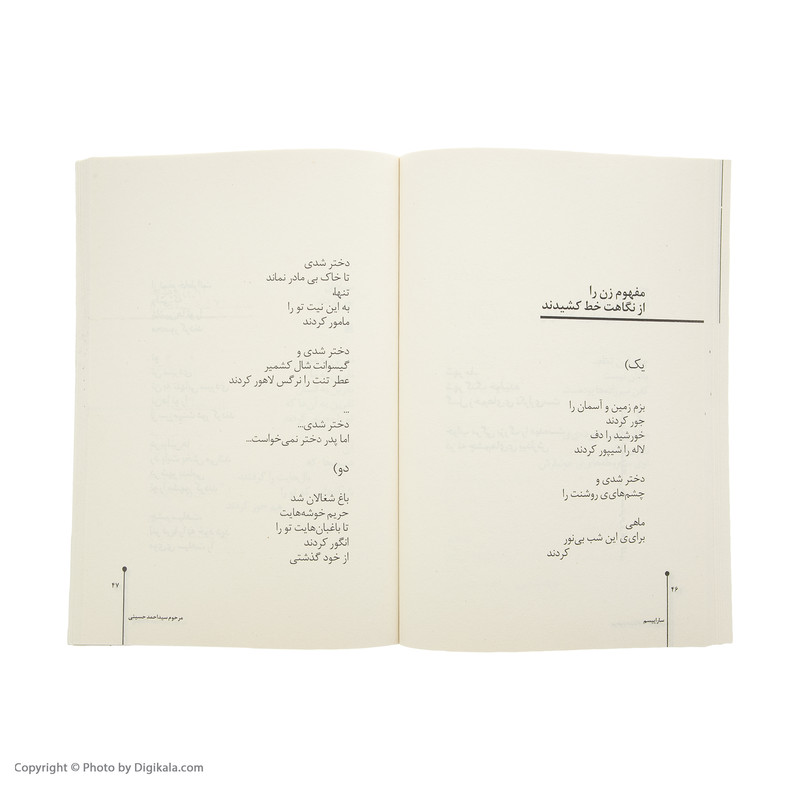 مفهوم زن را
از نگاهت خط کشیدند
یک)
بزم زمین و آسمان را
جور کردند
خورشید را دف
لاله را شیپور کردند
دختر شدی و
چشم‌های‌ی روشنت را
ماهی
برای‌ی این شب بی‌نور
کردند
۲۶
ساراییسم
دختر شدی
تا خاک بی مادر نماند
تنها،
به این نیت تو را
مامور کردند
دختر شدی و
گیسوانت شال کشمیر
عطر تنت را نرگس لاهور کردند
...
دختر شدی...
اما پدر دختر نمی‌خواست...
دو)
باغ شغالان شد
حریم خوشه‌هایت
تا باغبان‌هایت تو را
انگور کردند
از خود گذشتی
۲۷
مرحوم سیداحمد حسینی
Copyright © Photo by Digikala.com